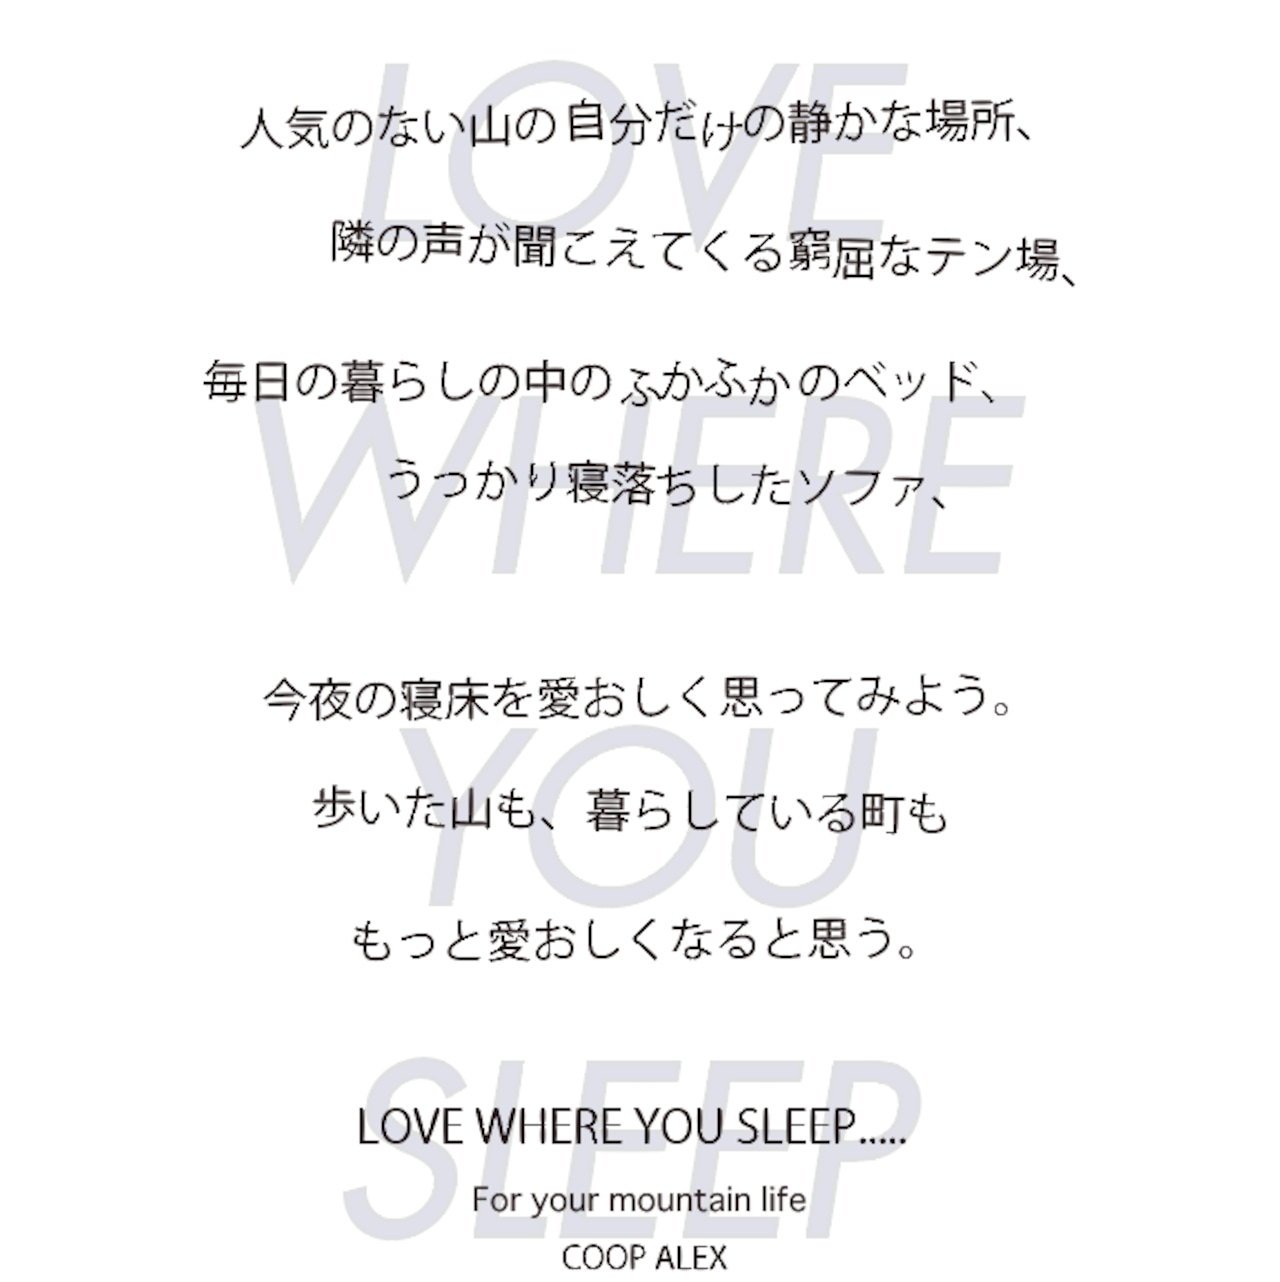 LOVE
人気のない山の自分だけの静かな場所、
隣の声が聞こえてくる窮屈なテン場、
毎日の暮らしの中のふかふかのベッド、
WHERE
うっかり寝落ちしたソファ、
今夜の寝床を愛おしく思ってみよう。
YOU
歩いた山も、暮らしている町も
もっと愛おしくなると思う。
SLEEP
LOVE WHERE YOU SLEEP.....
For your mountain life
COOP ALEX